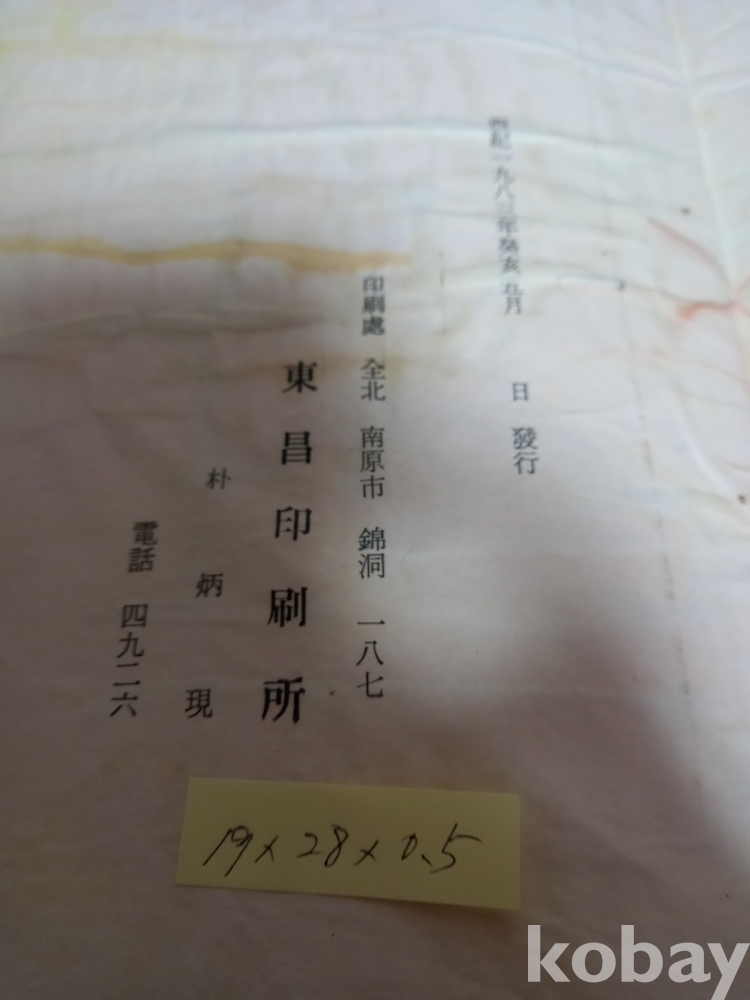 西紀一九八三年癸亥 九月 日 發行
印刷處 全北 南原市 錦洞 一八七
東昌印刷所
朴炳現
電話 四九二六
19 x 28 x 0.5
kobay